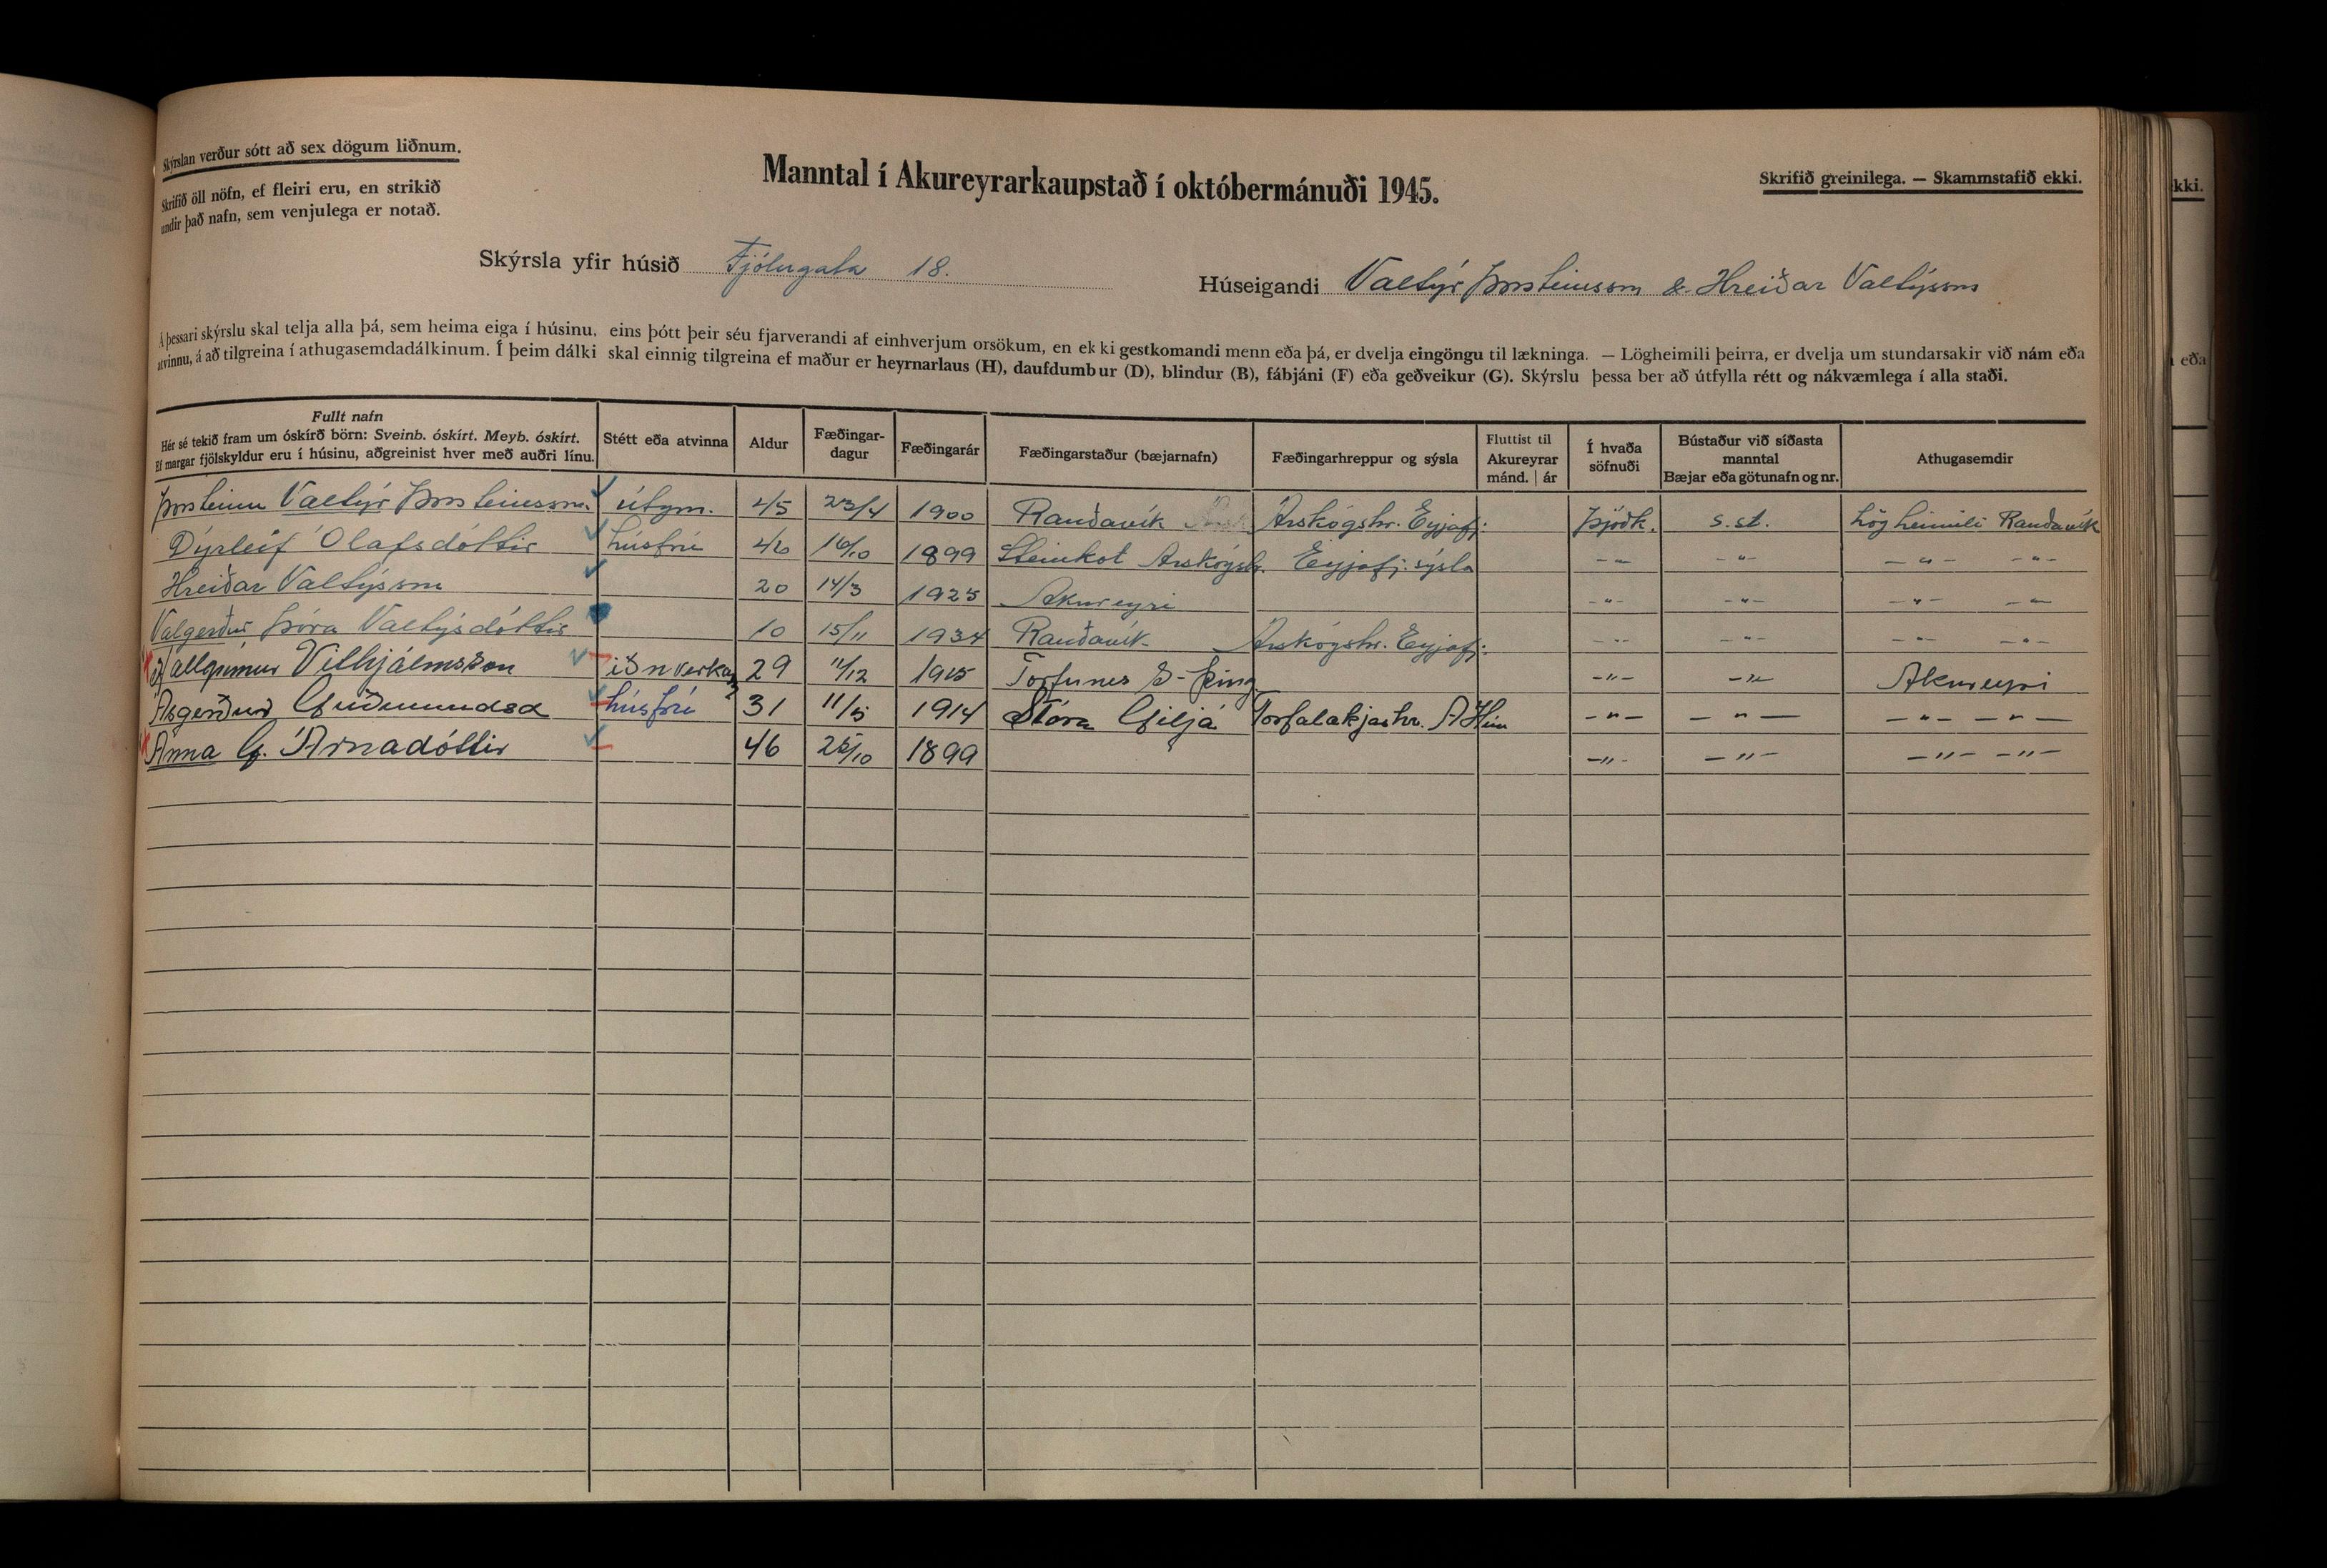 Skýrslan verður sótt að sex dögum liðnum.
Skrifið öll nöfn, ef fleiri eru, en strikið
undir það nafn, sem venjulega er notað.
Manntal í Akureyrarkaupstað í októbermánuði 1945.
Skrifið greinilega. — Skammstafið ekki.
Skýrsla yfir húsið Fjólugata 18.
Húseigandi Valtýr Þorsteinsson & Hreiðar Valtýsson
Á þessari skýrslu skal telja alla þá, sem heima eiga í húsinu, eins þótt þeir séu fjarverandi af einhverjum orsökum, en ekki gestkomandi menn eða þá, er dvelja eingöngu til lækninga. — Lögheimili þeirra, er dvelja um stundarsakir við nám eða
atvinnu, á að tilgreina í athugasemdadálkinum. Í þeim dálki skal einnig tilgreina ef maður er heyrnarlaus (H), daufdumbur (D), blindur (B), fábjáni (F) eða geðveikur (G). Skýrslu þessa ber að útfylla rétt og nákvæmlega í alla staði.
Fullt nafn
Hér sé tekið fram um óskírð börn: Sveinb. óskírt. Meyb. óskírt.
Ef margar fjölskyldur eru í húsinu, aðgreinist hver með auðri línu.
Stétt eða atvinna
Aldur
Fæðingar-
dagur
Fæðingarár
Fæðingarstaður (bæjarnafn)
Fæðingarhreppur og sýsla
Fluttist til
Akureyrar
mánd. | ár
Í hvaða
söfnuði
Bústaður við síðasta
manntal
Bæjar eða götunafn og nr.
Athugasemdir
Þorsteinn Valtýr Þorsteinsson. útgm. 45 23/4 1900 Rauðavík Árskógshr. Eyjafj: Þjóðk. s.st. Lögheimili Rauðavík
Dýrleif Ólafsdóttir húsfrú 46 16/10 1899 Steinkot Árskógshr. Eyjafj: sýsla -"- -"- -"- -"-
Hreiðar Valtýsson 20 14/3 1925 Akureyri -"- -"- -"- -"-
Valgerður Þóra Valtýsdóttir 10 15/11 1934 Rauðavík Árskógshr. Eyjafj: -"- -"- -"- -"-
Hallgrímur Vilhjálmsson iðnverkam 29 11/12 1915 Torfunes S-Þing -"- -"- Akureyri
Ásgerður Guðmundsd húsfrú 31 11/5 1914 Stóra Giljá Torfalækjarhr. A Hún -"- -"- -"- -"-
Anna G. Árnadóttir 46 25/10 1899 -"- -"- -"- -"-
kki.
eða